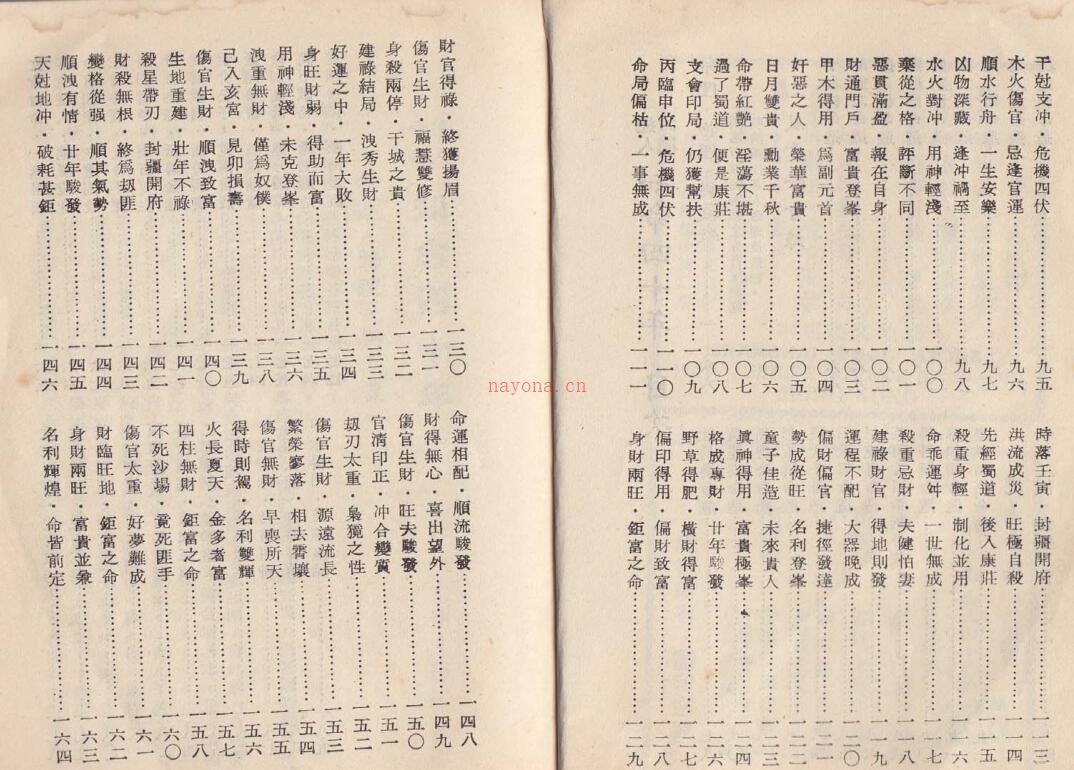 干尅支冲・危機四伏……九五
木火傷官・忌逢官運……九六
順水行舟・一生安樂……九七
凶物深藏・逢冲禍至……九八
水火對冲・用神輕淺……一〇〇
棄從之格・評斷不同……一〇一
惡貫滿盈・報在自身……一〇二
財通門戶・富貴登峯……一〇三
甲木得用・爲副元首……一〇四
好惡之人・榮華富貴……一〇五
日月雙貴・勳業千秋……一〇六
命帶紅艷・淫蕩不堪……一〇七
過了蜀道・便是康莊……一〇八
支會印局・仍獲幫扶……一〇九
丙臨申位・危機四伏……一一〇
命局偏枯・一事無成……一一一
時落壬寅・封疆開府……一一三
洪流成災・旺極自殺……一一四
先經蜀道・後入康莊……一一五
殺重身輕・制化並用……一一六
命乖運舛・一世無成……一一七
殺重忌財・夫健怕妻……一一八
建祿財官・得地則發……一一九
運程不配・大器晚成……一二〇
偏財偏官・捷徑發達……一二一
勢成從旺・名利登峯……一二二
童子佳造・未來貴人……一二三
眞神得用・富貴極峯……一二四
格成專財・廿年駿發……一二六
野草得肥・橫財得富……一二七
偏印得用・偏財致富……一二八
身財兩旺・鉅富之命……一二九
財官得祿・終獲揚眉……一三〇
傷官生財・福慧雙修……一三一
身殺兩停・干城之貴……一三二
建祿結局・洩秀生財……一三三
好運之中・一年大敗……一三四
身旺財弱・得助而富……一三五
用神輕淺・未克登峯……一三六
洩重無財・僅爲奴僕……一三八
己入亥宮・見卯損壽……一三九
傷官生財・順洩致富……一四〇
生地重建・壯年不祿……一四一
殺星帶刃・封疆開府……一四二
財殺無根・終爲刼匪……一四三
變格從强・順其氣勢……一四四
順洩有情・廿年駿發……一四五
天尅地冲・破耗甚鉅……一四六
命運相配・順流駿發……一四八
財得無心・喜出望外……一四九
傷官生財・旺夫駿發……一五〇
官淸印正・冲合變質……一五一
刼刃太重・梟獍之性……一五二
傷官生財・源遠流長……一五三
繁榮寥落・相去霄壤……一五四
傷官無財・早喪所天……一五五
得時則駕・名利雙輝……一五六
火長夏天・金多者富……一五七
四柱無財・鉅富之命……一五八
不死沙場・竟死匪手……一六〇
傷官太重・好夢難成……一六一
財臨旺地・鉅富之命……一六二
身財兩旺・富貴並兼……一六三
名利輝煌・命皆前定……一六四
nayona.cn